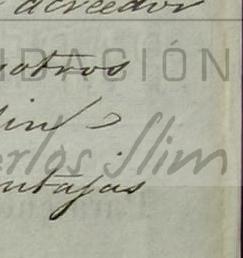 acreedor
FUNDACIÓN
sotros
Carlos Slim
entajas